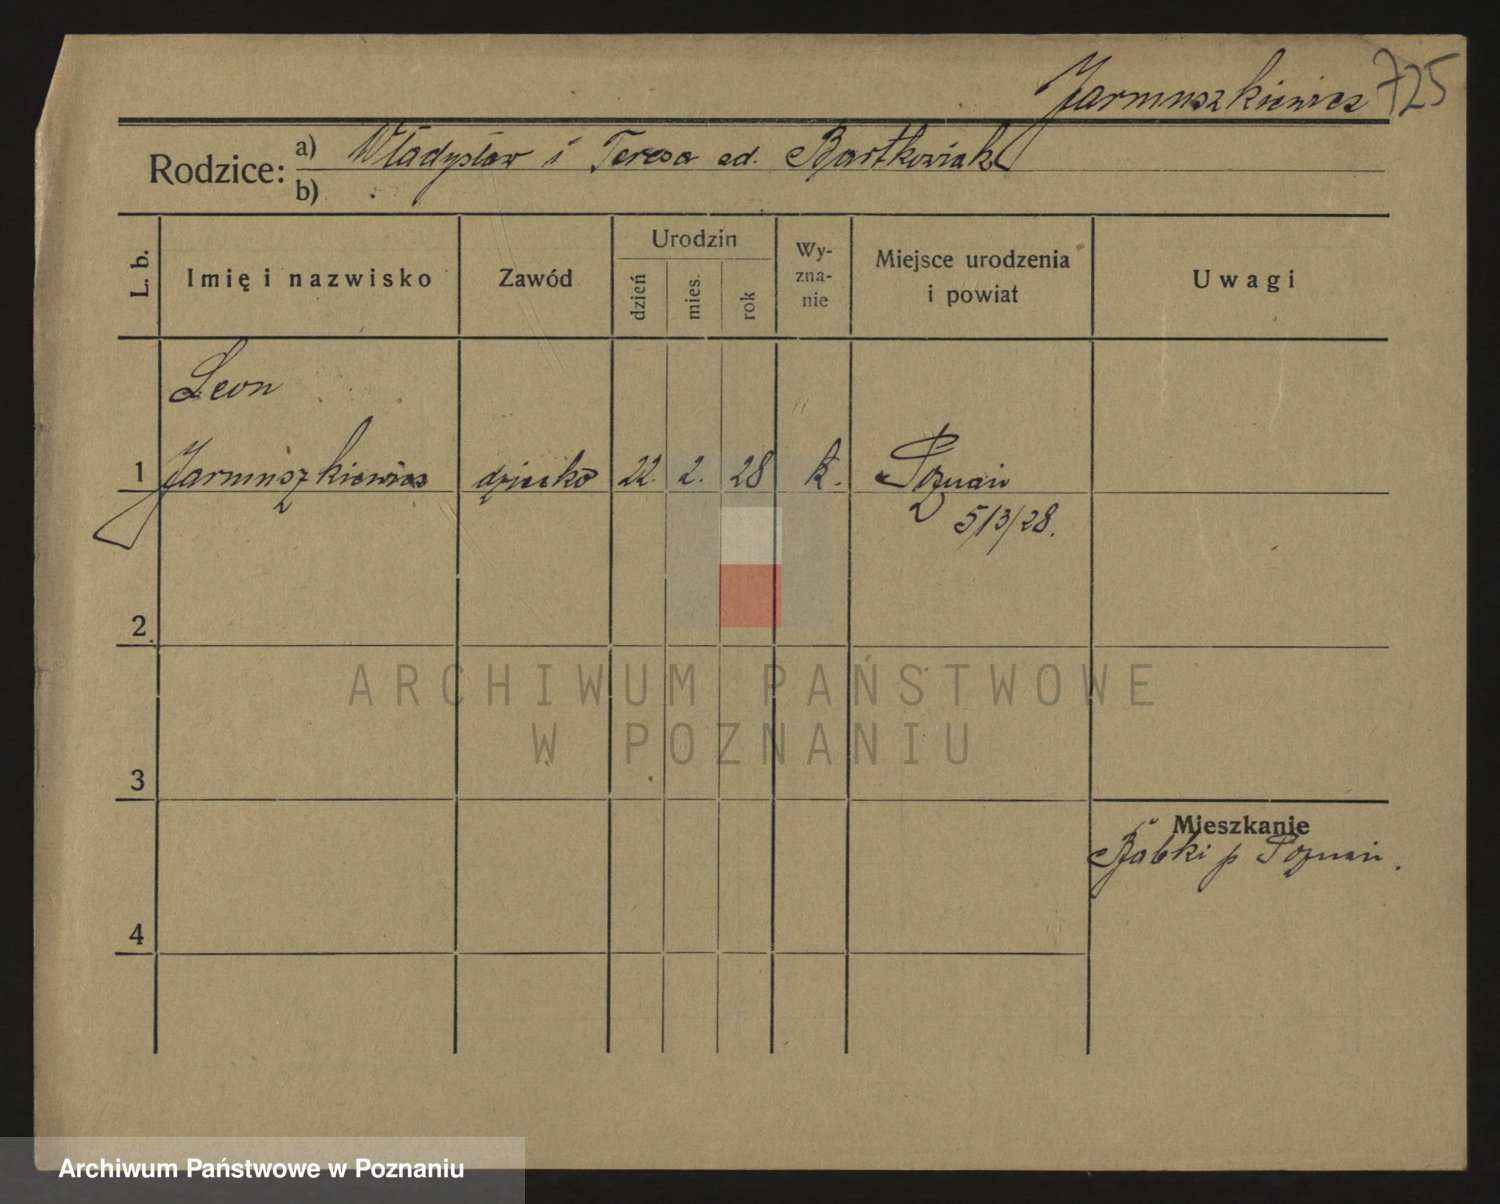 Jarmuszkiewicz 725
Rodzice: a) Władysław i Teresa ad. Bartkowiak
b)
L. b. Imię i nazwisko Zawód Urodzin dzień mies. rok Wy-zna-nie Miejsce urodzenia i powiat Uwagi
Leon
1 Jarmuszkiewicz dziecko 22. 2. 28 k. Poznań
5/3/28.
2
3
Mieszkanie
Babki p Poznań.
4
ARCHIWUM PAŃSTWOWE
W POZNANIU
Archiwum Państwowe w Poznaniu